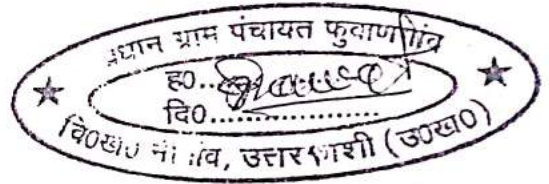 प्रधान ग्राम पंचायत फुवाणगांव
ह0..
दि0..................
वि0ख0 नौगांव, उत्तरकाशी (उ0ख0)